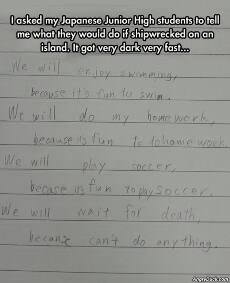 I asked my Japanese Junior High students to tell
me what they would do if shipwrecked on an
island. It got very dark very fast...
We will enjoy swimming,
because it's fun to swim.
We will do my homework,
because is fun to home work
We will play soccer,
because is fun to play soccer.
We will wait for death,
because can't do anything.